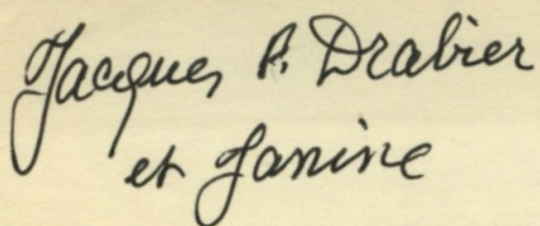 Jacques P. Drabier
et Janine